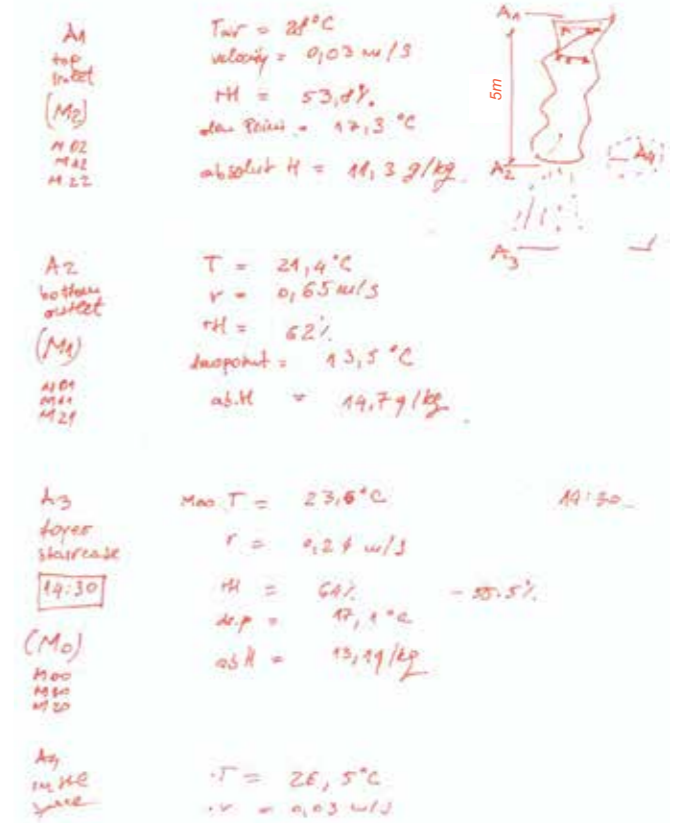 A1
top
inlet
(M2)
M02
M12
M22
Tair = 28°C
velocity = 0,03 m/s
rH = 53,8%
dew Point = 17,3 °C
absolut H = 11,3 g/kg
A1
5m
A2
A3
A4
A2
bottom
outlet
(M1)
M01
M11
M21
T = 21,4°C
v = 0,65 m/s
rH = 62%
dewpoint = 13,5 °C
ab.H = 14,7 g/kg
A3
foyer
staircase
14:30
(M0)
M00
M10
M20
M00 T = 23,6°C
14:30
v = 0,24 m/s
rH = 61% - 55.5%
de.p = 17,1°C
abH = 13,1g/kg
A4
in the
T = 26,5°C
v = 0,03 m/s